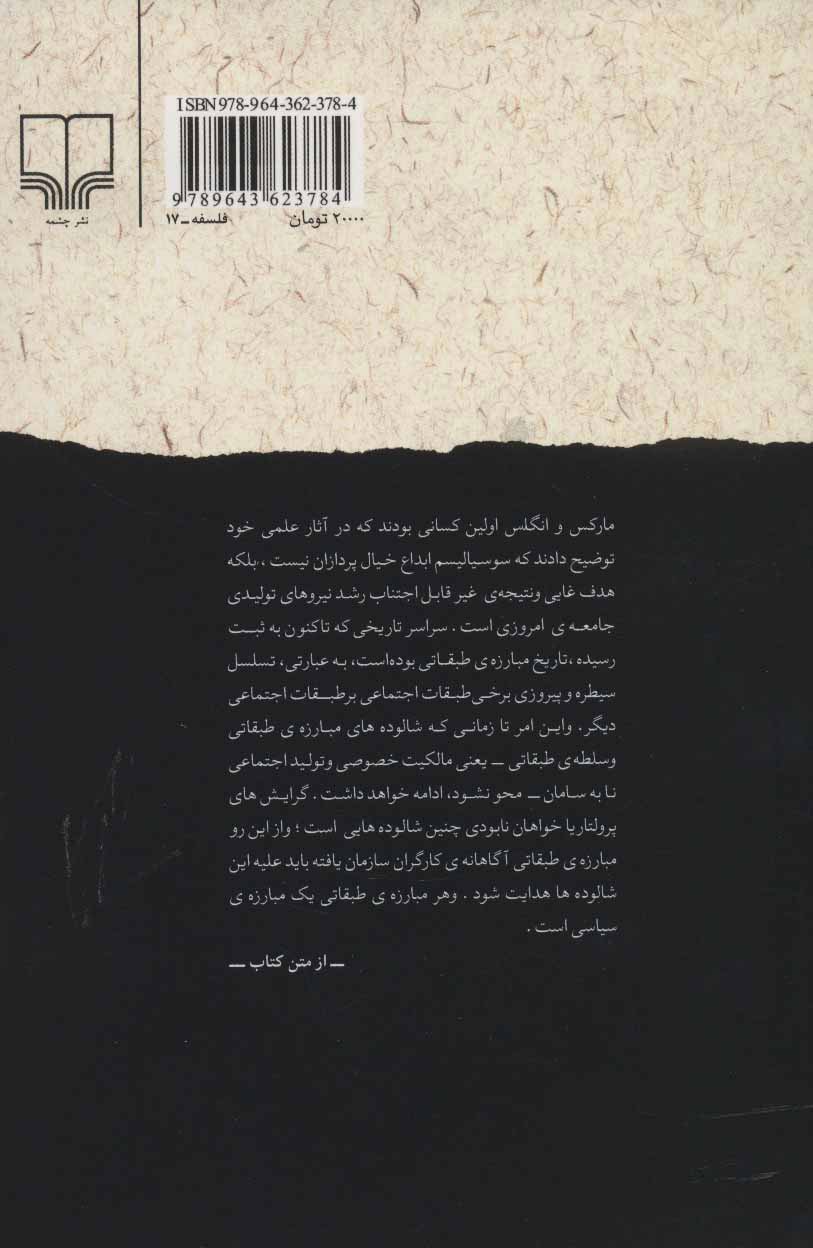 ISBN978-964-362-378-4
9 789643 623784
۲۰۰۰۰ تومان
فلسفه ـ ۱۷
نشر چشمه
مارکس و انگلس اولین کسانی بودند که در آثار علمی خود
توضیح دادند که سوسیالیسم ابداع خیال پردازان نیست ، بلکه
هدف غایی ونتیجه‌ی غیر قابل اجتناب رشد نیروهای تولیدی
جامعه ی امروزی است . سراسر تاریخی که تاکنون به ثبت
رسیده ،تاریخ مبارزه ی طبقاتی بوده‌است، به عبارتی، تسلسل
سیطره و پیروزی برخی طبقات اجتماعی برطبقات اجتماعی
دیگر. واین امر تا زمانی که شالوده های مبارزه ی طبقاتی
وسلطه‌ی طبقاتی ــ یعنی مالکیت خصوصی وتولید اجتماعی
نا به سامان ــ محو نشود، ادامه خواهد داشت . گرایش های
پرولتاریا خواهان نابودی چنین شالوده هایی است ؛ واز این رو
مبارزه ی طبقاتی آگاهانه ی کارگران سازمان یافته باید علیه این
شالوده ها هدایت شود . وهر مبارزه ی طبقاتی یک مبارزه ی
سیاسی است .
ــ از متن کتاب ــ